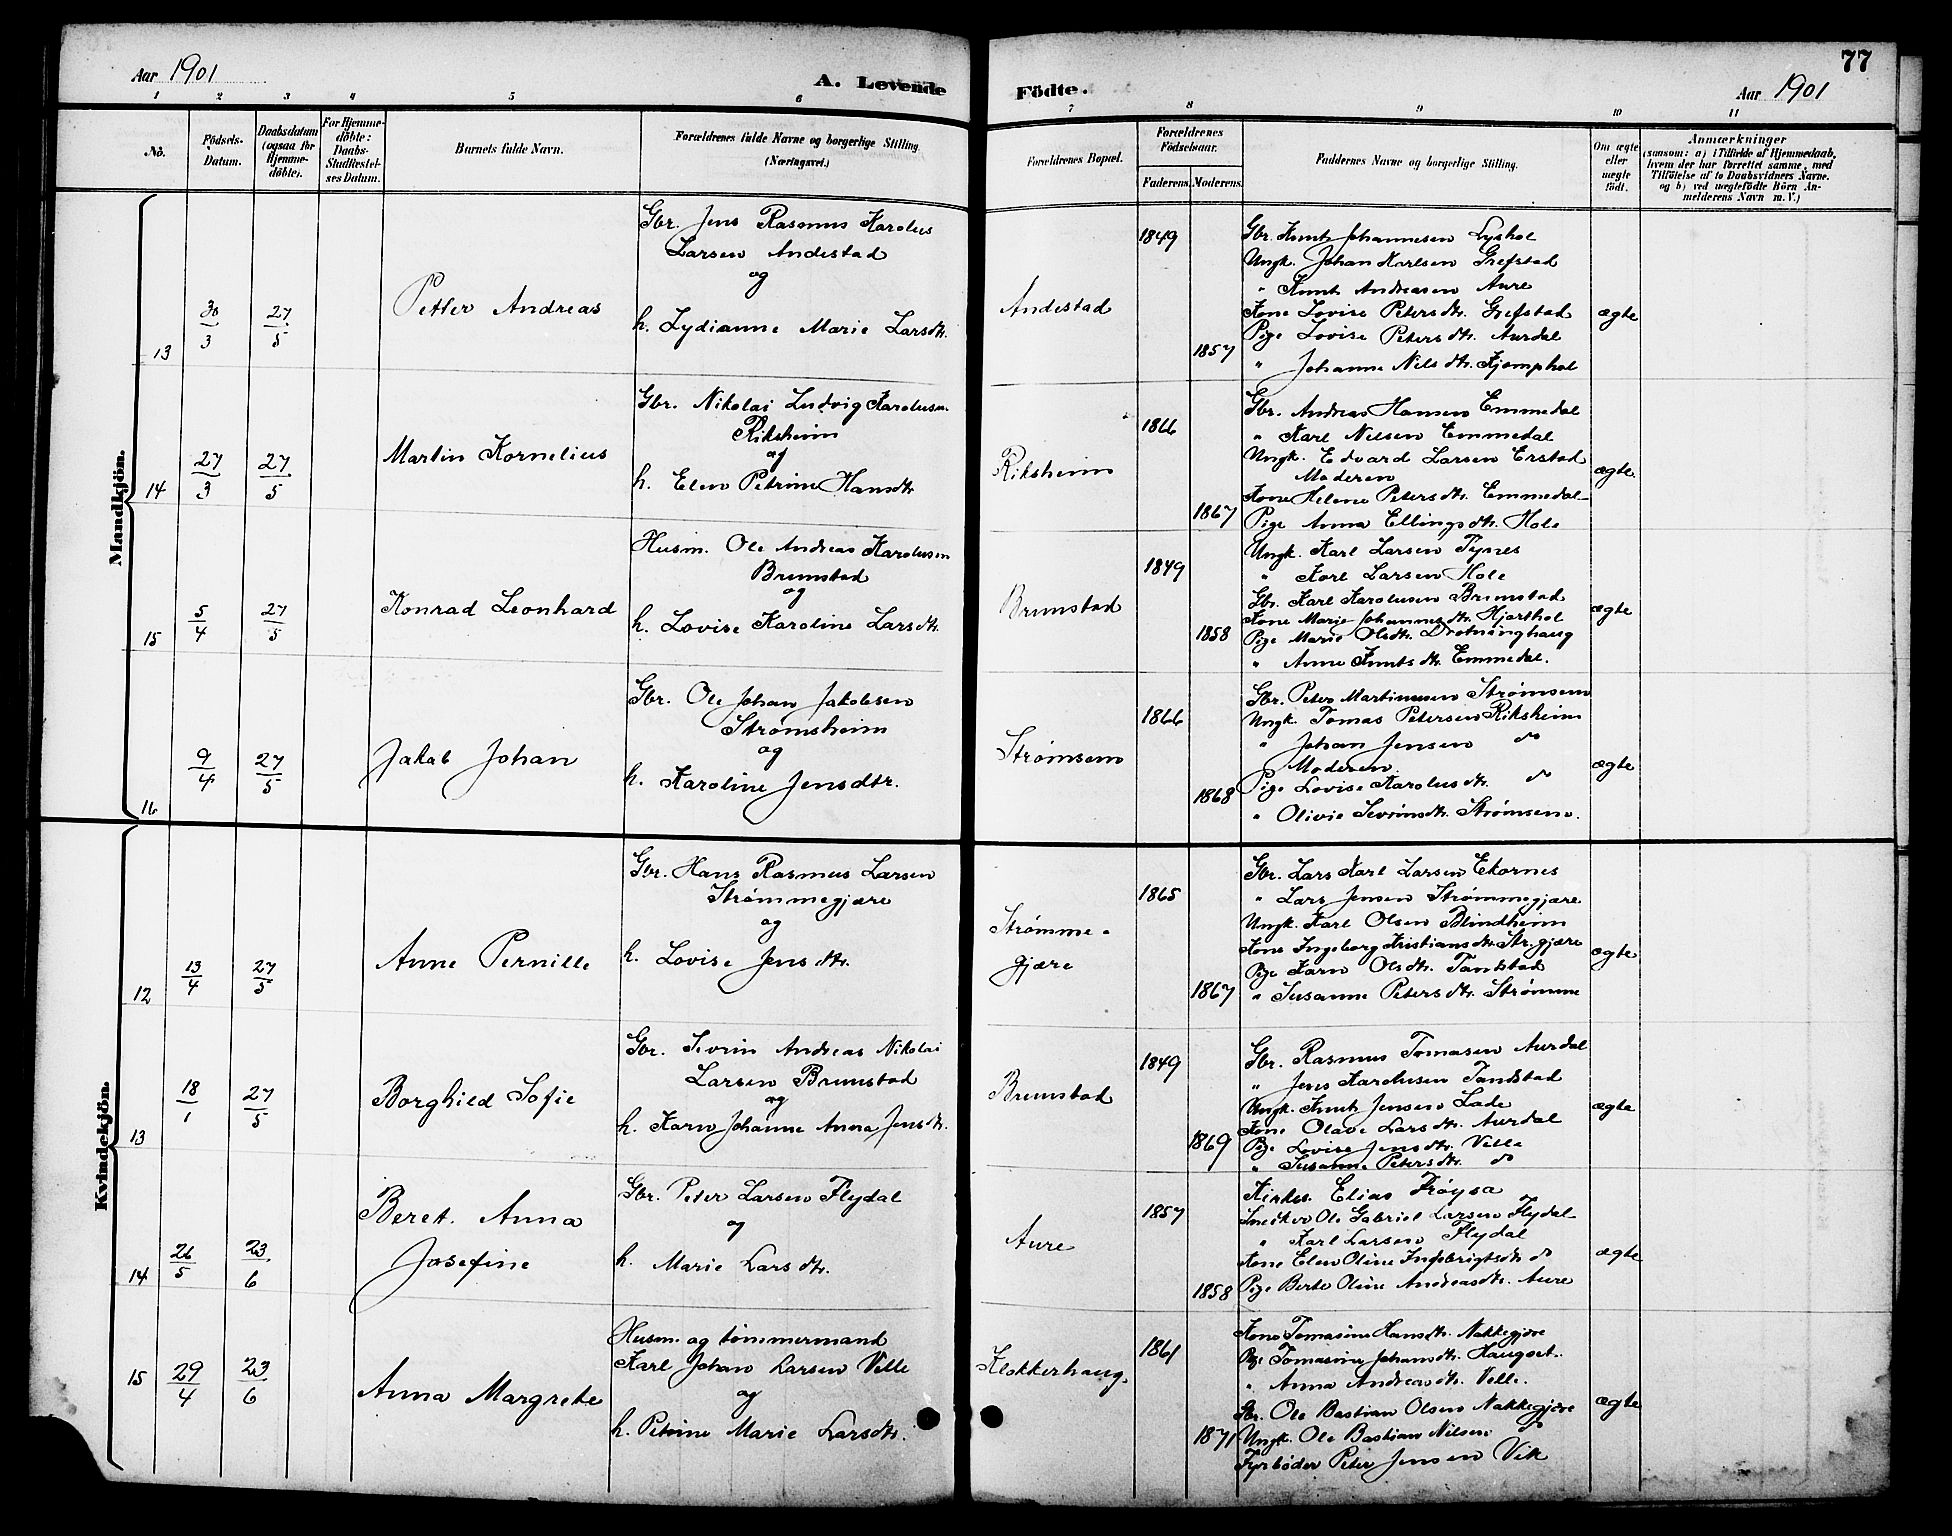 77
Aar 1901
A. Levende Födte.
Aar 1901
1 2 3 4 5 6 7 8 9 10 11
No.
Födsels-Datum.
Daabsdatum (ogsaa for Hjemme-döbte).
For Hjemme-döbte: Daabs-Stadfæstel-ses Datum.
Barnets fulde Navn.
Forældrenes fulde Navne og borgerlige Stilling (Næringsvei.)
Forældrenes Bopæl.
Forældrenes Födselsaar.
Faderens. Moderens.
Faddernes Navne og borgerlige Stilling.
Om ægte eller uægte födt.
Anmærkninger
(saasom: a) i Tilfælde af Hjemmedaab,
hvem der har forrettet samme, med
Tilföielse af to Daabsvidners Navne.
og b) ved uægtefödte Börn An-
melderens Navn m. V.)
Mandkjön.
13
30/3
27/5
Petter Andreas
Gbr. Jens Rasmus Karolus
Larsen Andestad
og
h. Lydianne Marie Larsdtr.
Andestad
1849
1857
Gbr. Knut Johannesen Lyshol
Ungk. Johan Karlsen Grefstad
" Knut Andreasen Aure
Kone Lovise Petersdtr. Grefstad
Pige Lovise Petersdtr. Aurdal
" Johanne Nilsdtr. Kjemphol
ægte
14
27/3
27/5
Martin Kornelius
Gbr. Nikolai Ludvig Karolusen.
Riksheim
og
h. Elen Petrine Hansdtr
Riksheim
1866
1867
Gbr. Andreas Hansen Emmedal
" Karl Nilsen Emmedal
Ungk. Edvard Larsen Erstad
Moderen
Kone Helene Petersdtr. Emmedal
Pige Anna Ellingsdtr. Hole
ægte.
15
5/4
27/5
Konrad Leonhard
Husm. Ole Andreas Karolusen
Brunstad
og
h. Lovise Karoline Larsdtr.
Brunstad
1849
1858
Ungk. Karl Larsen Tynes
" Karl Larsen Hole
Gbr. Karl Karolusen Brunstad
Kone Marie Johannesdtr. Hjorthol
Pige Marie Olsdtr. Drotninghaug
" Anne Knutsdtr. Emmedal.
ægte
16
9/4
27/5
Jakob Johan
Gbr. Ole Johan Jakobsen
Strømsheim
og
h. Karoline Jensdtr.
Strømsem
1866
1868
Gbr. Peter Martinusen Strømsem
Ungk. Tomas Petersen Riksheim
" Johan Jensen do
Moderen.
Pige Lovise Karolusdtr. do
" Olivie Sevrinsdtr. Strømsem.
ægte
Kvindekjön.
12
13/4
27/5
Anne Pernille
Gbr. Hans Rasmus Larsen
Strømmegjære
og
h. Lovise Jensdtr.
Strømme-
gjære
1865
1867
Gbr. Lars Karl Larsen Ekornes
" Lars Jensen Strømmegjære
Ungk. Karl Olsen Blindheim
Kone Ingeborg Kristiansdtr. Str.gjære
Pige Karn Olsdtr. Tandstad
" Susanne Petersdtr. Strømme
ægte
13
18/1
27/5
Borghild Sofie
Gbr. Sevrin Andreas Nikolai
Larsen Brunstad
og
h. Karn Johanne Anna Jensdtr.
Brunstad
1849
1869
Gbr. Rasmus Tomasen Aurdal
" Jens Karolusen Tandstad
Ungk. Knut Jensen Lade
Kone Olave Larsdtr. Aurdal
Pige Lovise Jensdtr. Velle
" Susanne Petersdtr. do
ægte
14
26/5
23/6
Beret. Anna
Josefine
Gbr. Peter Larsen Flydal
og
h. Marie Larsdtr.
Aure
1857
1858
Kirkes. Elias Frøysa
Snedker Ole Gabriel Larsen Flydal
" Karl Larsen Flydal
Kone Elen Oline Ingebrigtsdtr do
Pige Berte Oline Andreasdtr. Aure
ægte
15
29/4
23/6
Anna Margrete
Husm. og tømmermand
Karl Johan Larsen Velle
og
h. Petrine Marie Larsdtr.
Klokkerhaug.
1861
1871
Kone Tomasine Hansdtr. Nakkegjære
Pige Tomasine Johansdtr. Haugset.
" Anna Andreasdtr. Velle.
Gbr. Ole Bastian Olsen Nakkegjære
Ungk. Ole Bastian Nilsen do
Fyrbøder Peter Jensen Vik
ægte